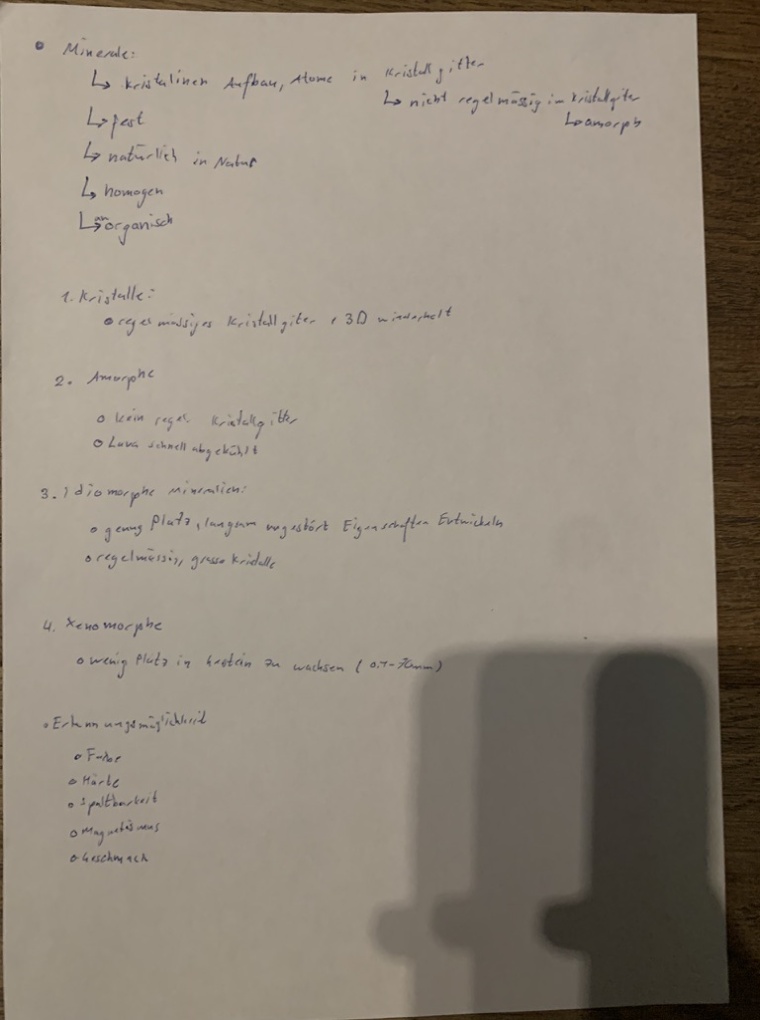 Minerale:
↳ kristalinen Aufbau, Atome in Kristallgitter
↳ nicht regelmässig im kristallgiter
↳ amorph
↳ fest
↳ natürlich in Natur
↳ homogen
↳ anorganisch
1. Kristalle:
regelmässiges Kristallgiter, 3D wiederholt
2. Amorphe
kein regel. Kristallgitter
Lava schnell abgekühlt
3. Idiomorphe Mineralien:
genug Platz, langsam ungestört Eigenschaften Entwickeln
regelmässig, grosse Kristalle
4. Xenomorphe
wenig Platz in Gestein zu wachsen (
Erkennungsmöglichkeit
Farbe
Härte
Spaltbarkeit
Magnetismus
Geschmack